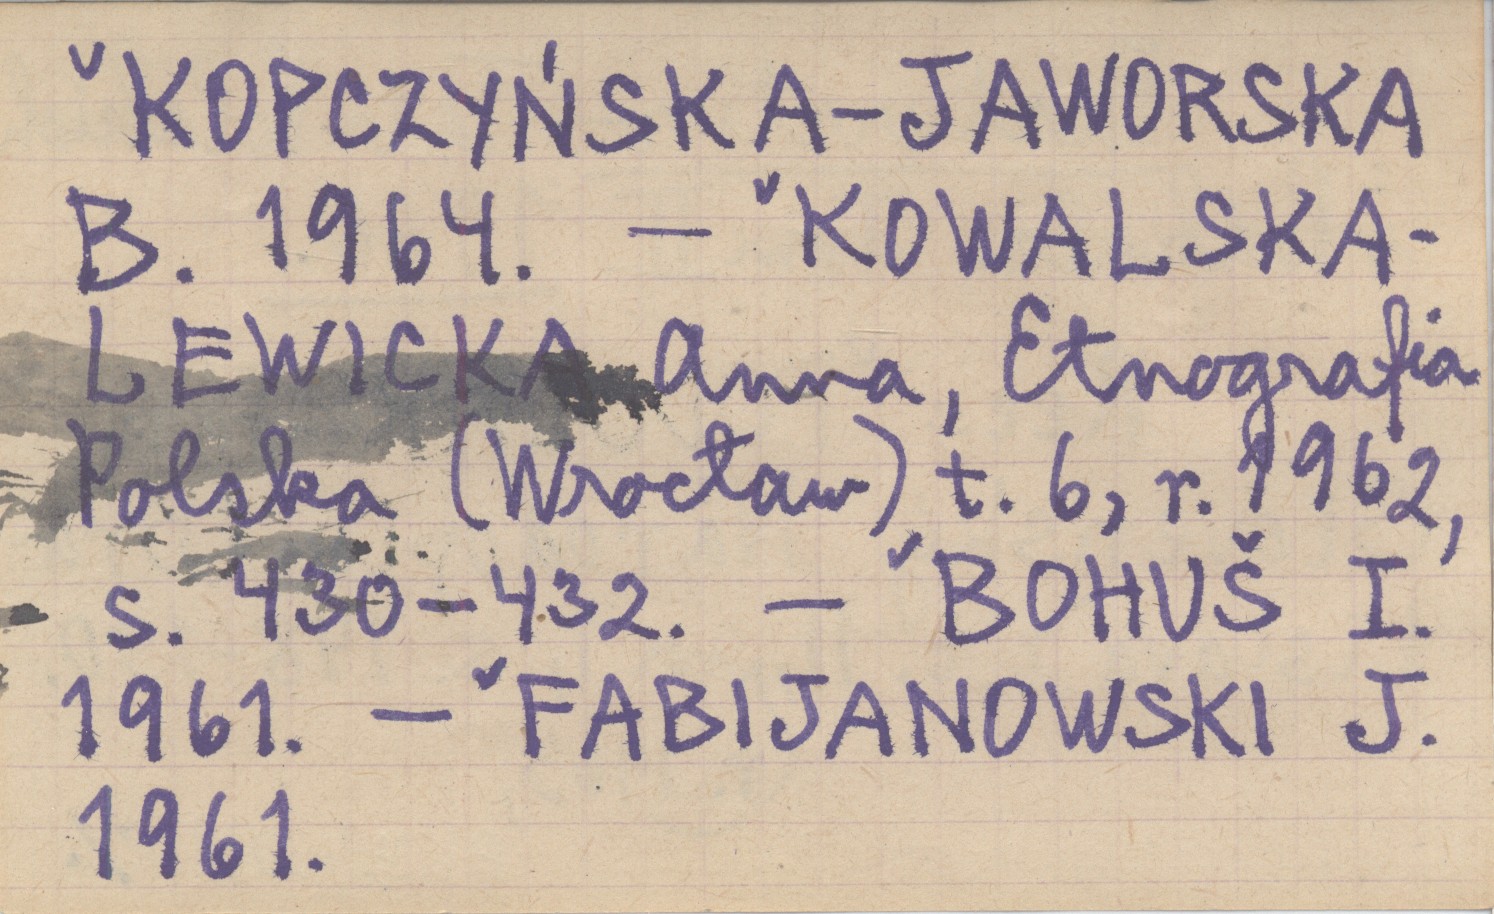 ˇKOPCZYŃSKA-JAWORSKA
B. 1964. — ˇKOWALSKA-
LEWICKA Anna, Etnografia
Polska (Wrocław) t. 6, r. 1962,
s. 430-432. — ˇBOHUŠ I.
1961. — ˇFABIJANOWSKI J.
1961.